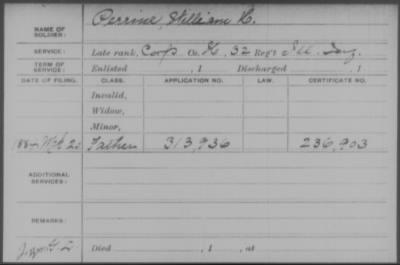 NAME OF SOLDIER: Perrine, William H.
SERVICE: Late rank, Corp Co. H, 32 Reg't Ill. Inf.
TERM OF SERVICE: Enlisted , 1 Discharged , 1
DATE OF FILING. CLASS. APPLICATION NO. LAW. CERTIFICATE NO.
Invalid,
Widow,
Minor,
Mch Father 313,936 236,903
ADDITIONAL SERVICES:
REMARKS:
Died , 1 , at